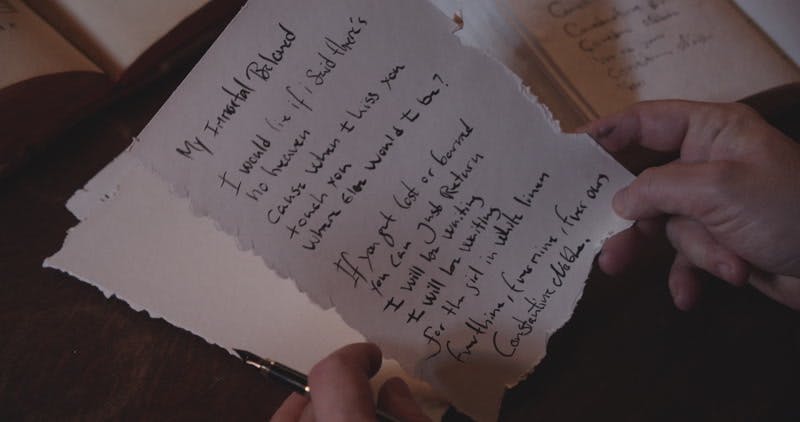 My Immortal Beloved
I would lie if I said there's
no heaven
Cause when I kiss you
touch you
where else would I be?
If you get lost or bored
you can just Return
I will be waiting
I will be waiting
for the girl in white linen
Ever thine, Ever mine, Ever ours
Constantine